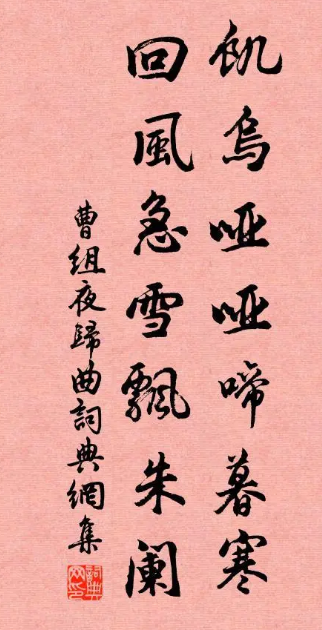 飢烏啞啞啼暮寒
回風急雪飄朱闌
曹組夜歸曲詞典網集